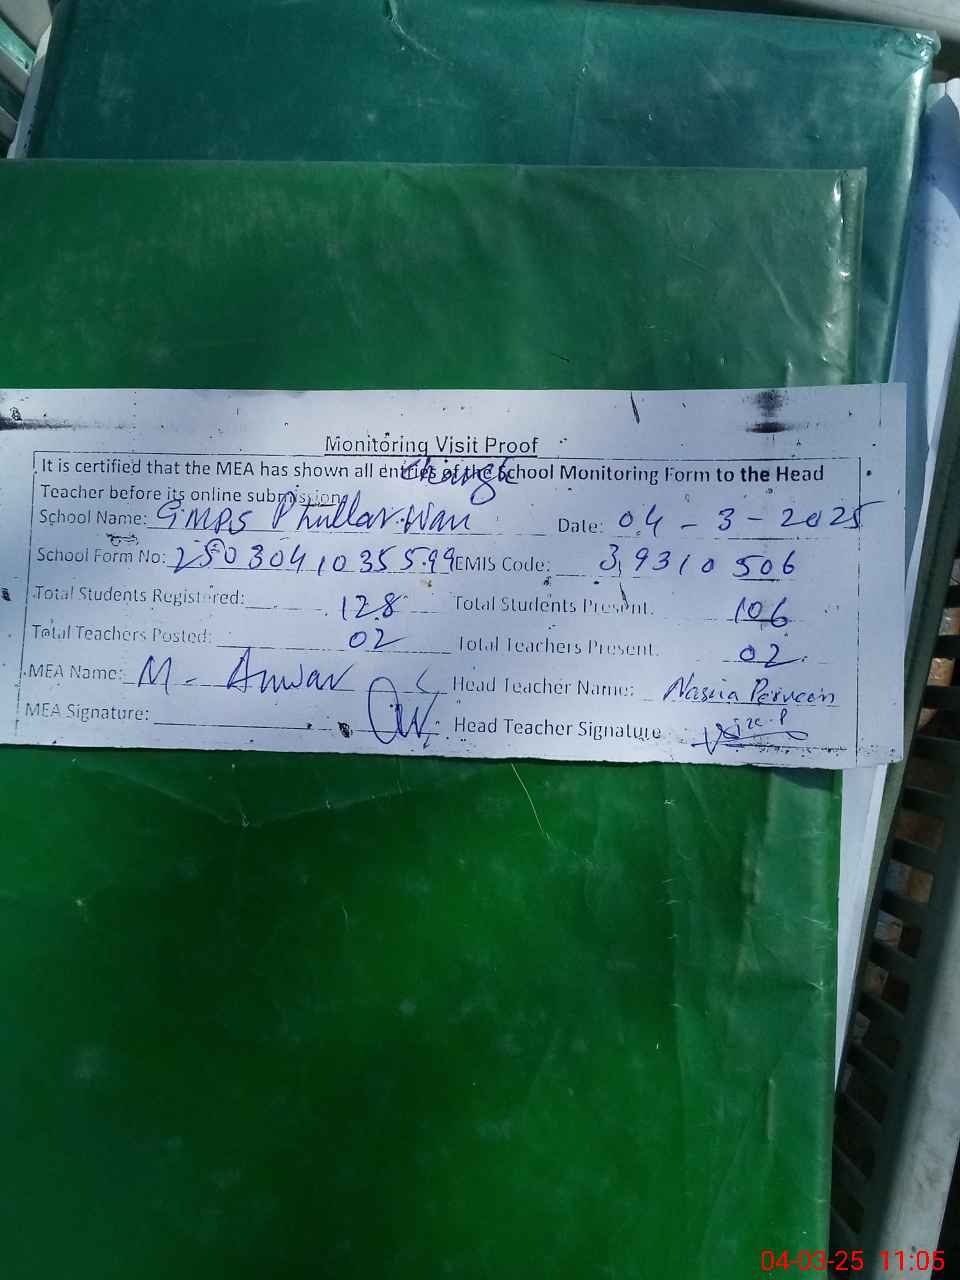 Monitoring Visit Proof
It is certified that the MEA has shown all entries of the School Monitoring Form to the Head
Teacher before its online submission.
School Name: GMPS Phullarwan Date: 04-3-2025
School Form No: 2503041035599 EMIS Code: 39310506
Total Students Registered: 128 Total Students Present. 106
Total Teachers Posted: 02 Total Teachers Present. 02
MEA Name: M. Anwar Head Teacher Name: Perveen
MEA Signature: Head Teacher Signature
04-03-25 11:05